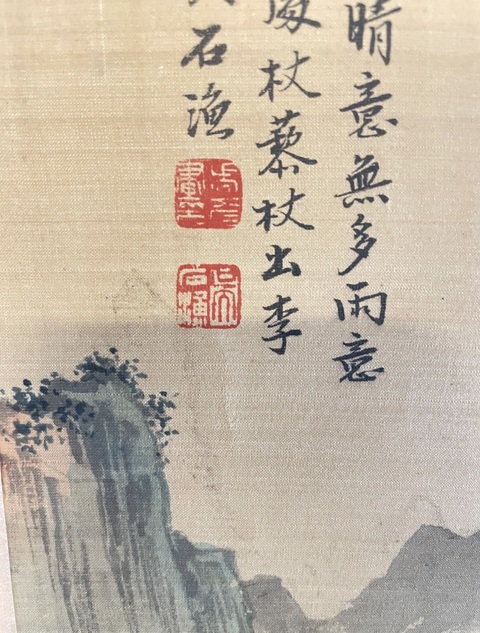 晴意無多雨意
杖藜杖出李
石漁